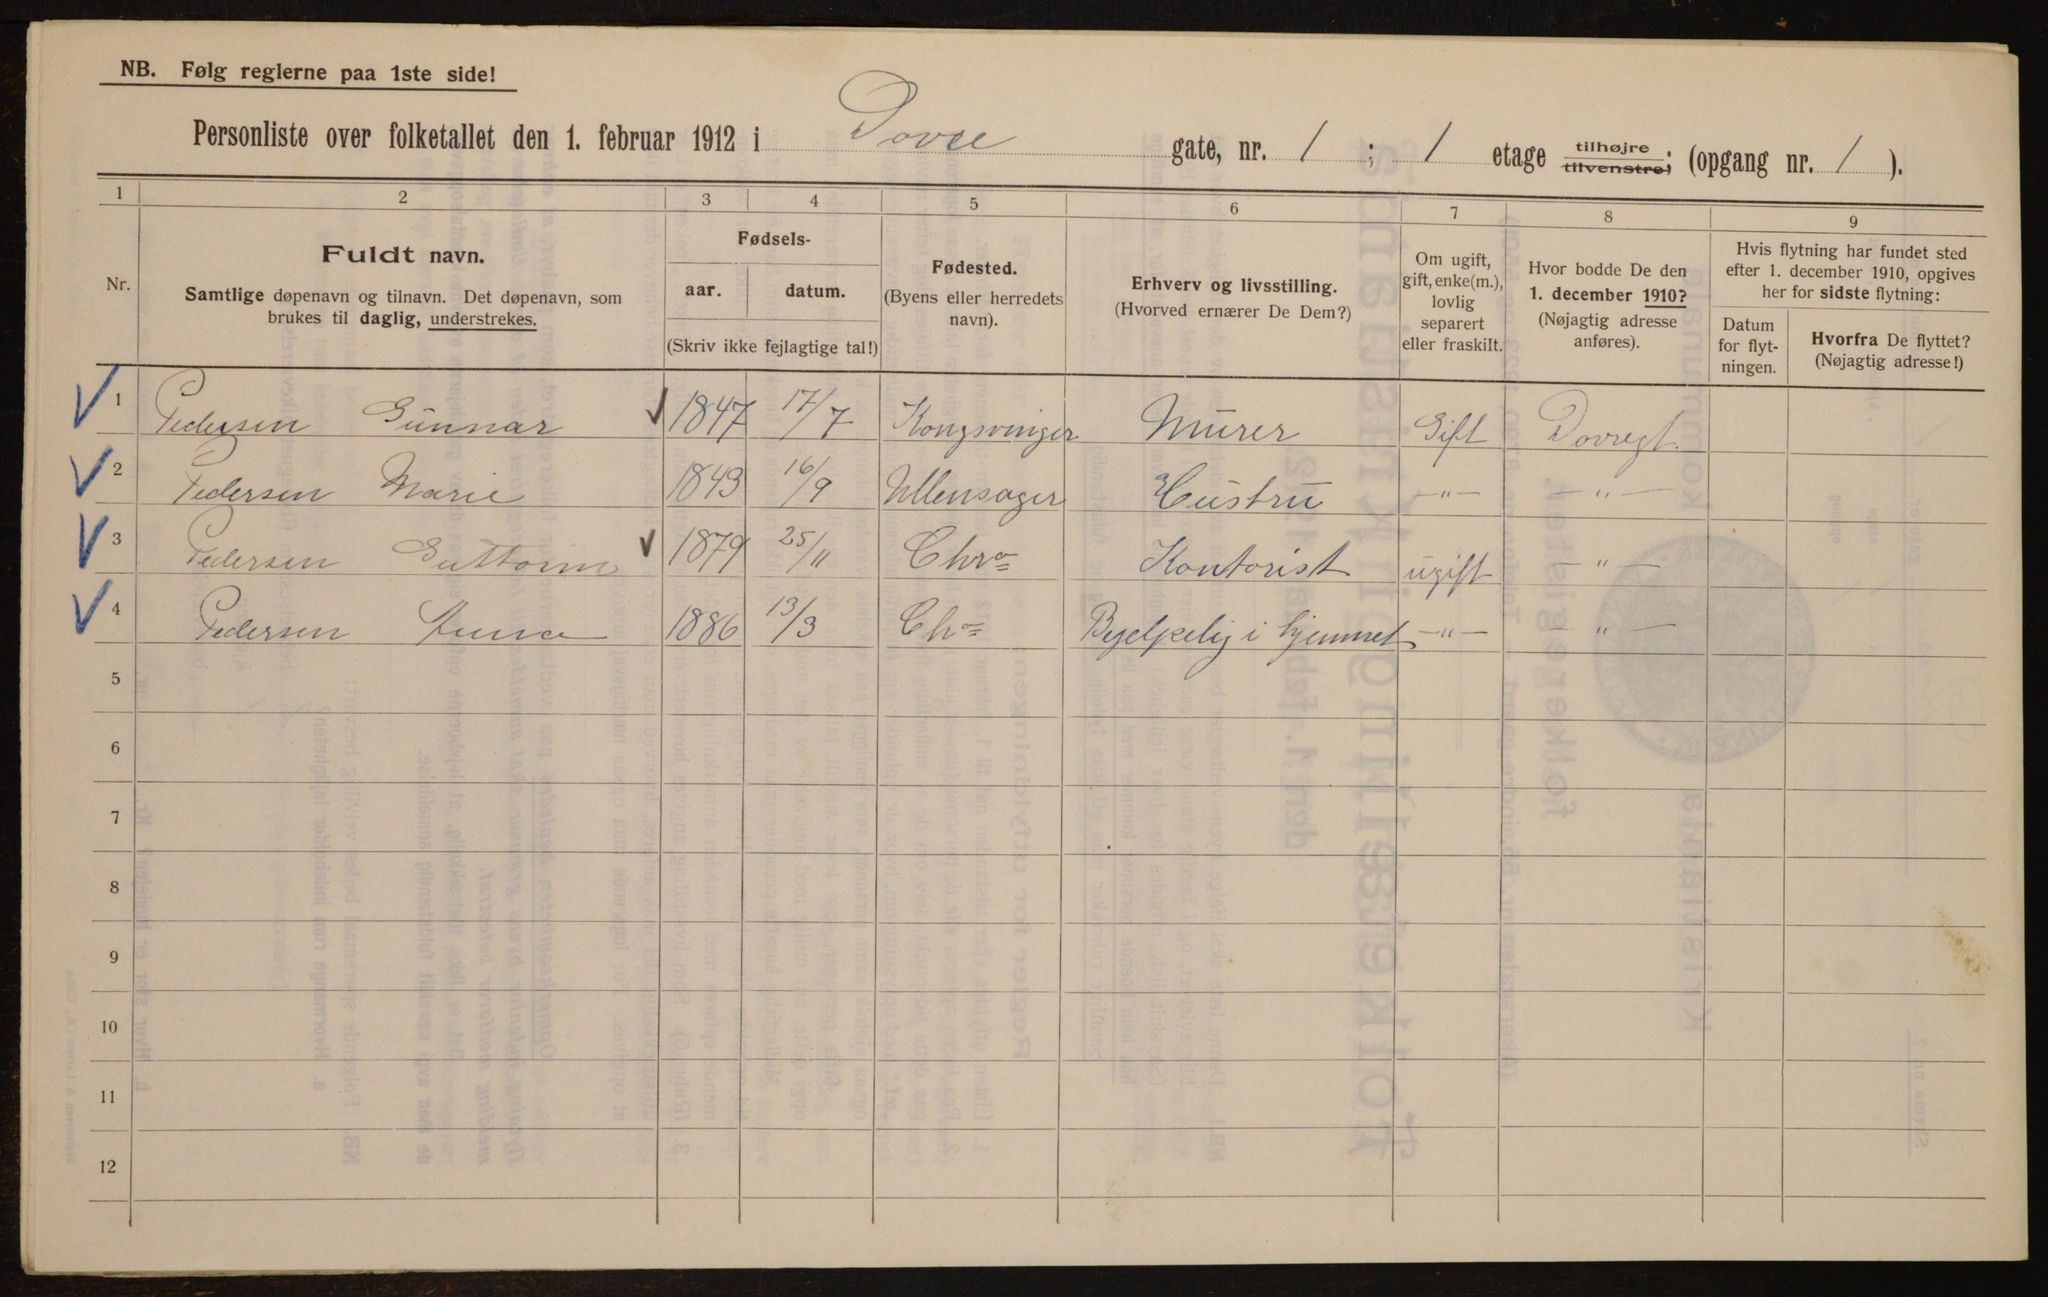 NB. Følg reglerne paa 1ste side!
Personliste over folketallet den 1. februar 1912 i Dovre gate, nr. 1 ; 1 etage tilhøjre tilvenstre; (opgang nr. 1 ).
1 2 3 4 5 6 7 8 9
Nr.
Fuldt navn.
Samtlige døpenavn og tilnavn. Det døpenavn, som
brukes til daglig, understrekes.
Fødsels-
aar. datum.
(Skriv ikke fejlagtige tal!)
Fødested.
(Byens eller herredets
navn).
Erhverv og livsstilling.
(Hvorved ernærer De Dem?)
Om ugift,
gift, enke(m.),
lovlig
separert
eller fraskilt.
Hvor bodde De den
1. december 1910?
(Nøjagtig adresse
anføres).
Hvis flytning har fundet sted
efter 1. december 1910, opgives
her for sidste flytning:
Datum
for flyt-
ningen.
Hvorfra De flyttet?
(Nøjagtig adresse!)
1 Pedersen Gunnar 1847 17/7 Kongsvinger Murer Gift Dovregt.
2 Pedersen Marie 1843 16/9 Ullensager Hustru —"— —"—
3 Pedersen Guttorm 1879 25/11 Chra Kontorist ugift —"—
4 Pedersen Anna 1886 13/3 Chra Behjelpelig i hjemmet —"— "—
5
6
7
8
9
10
11
12